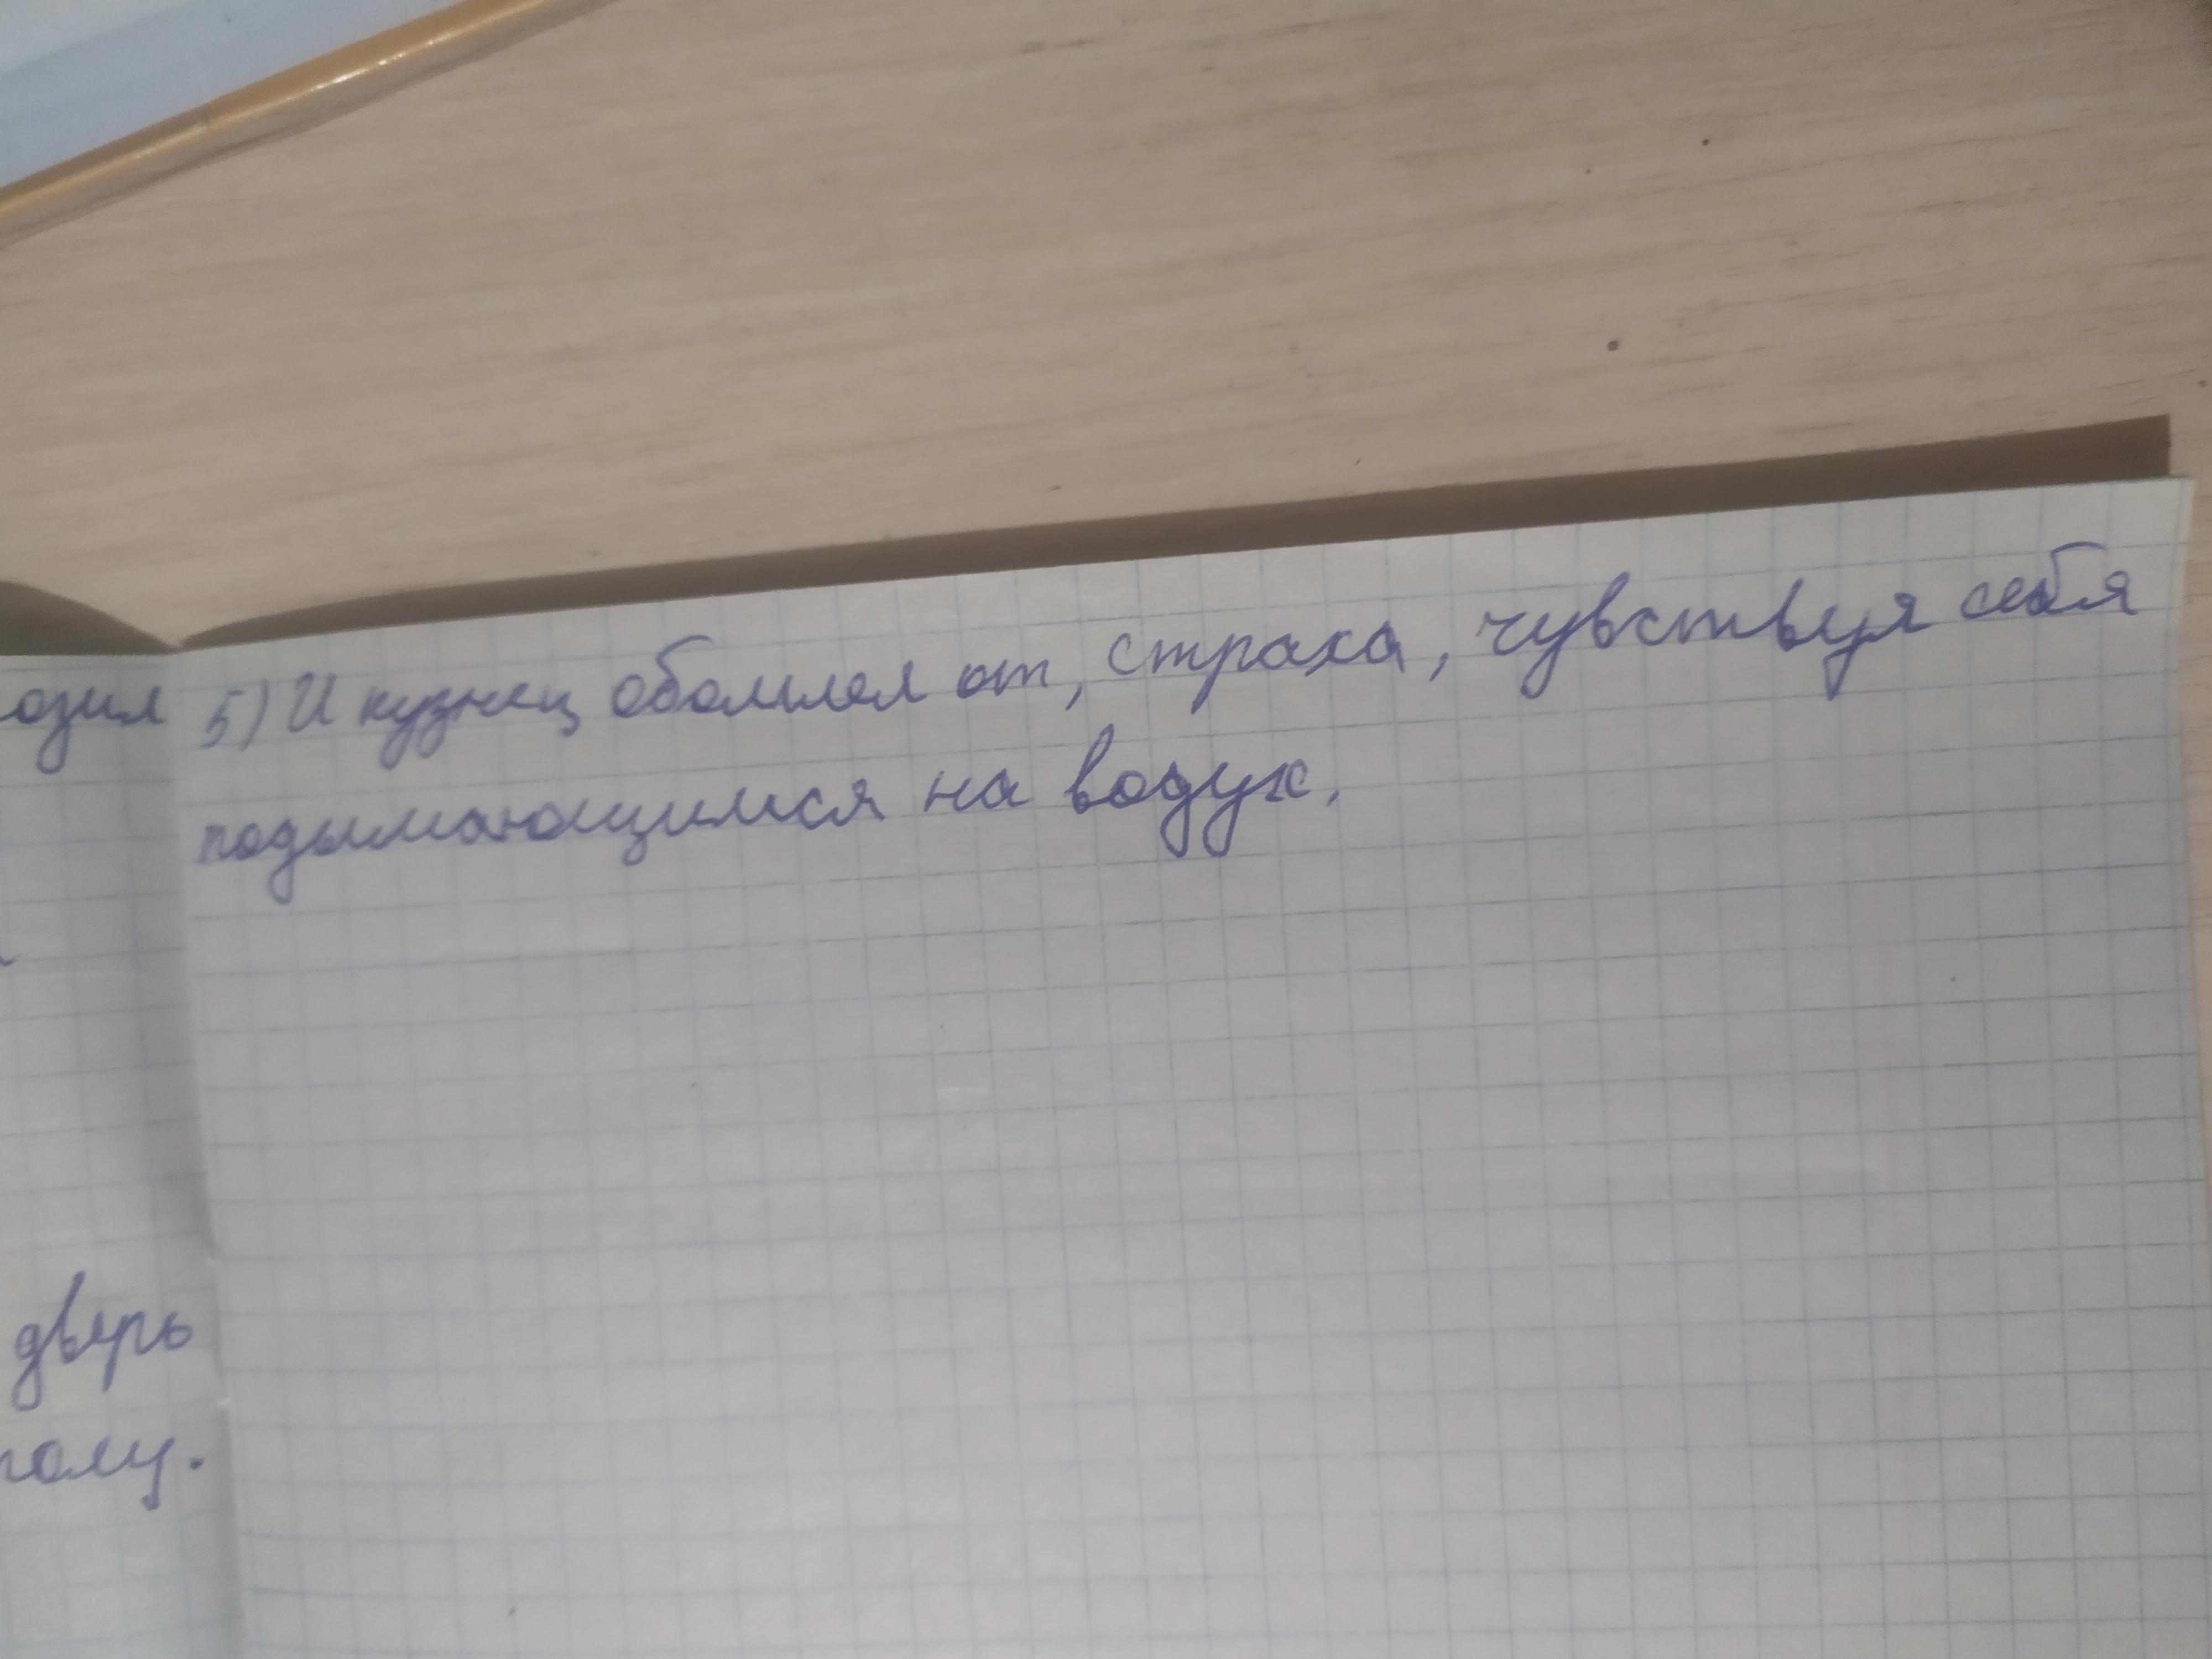 озил
5) И кузнец обомлел от, страха, чувствуя себя
подымающимся на водух.
дверь